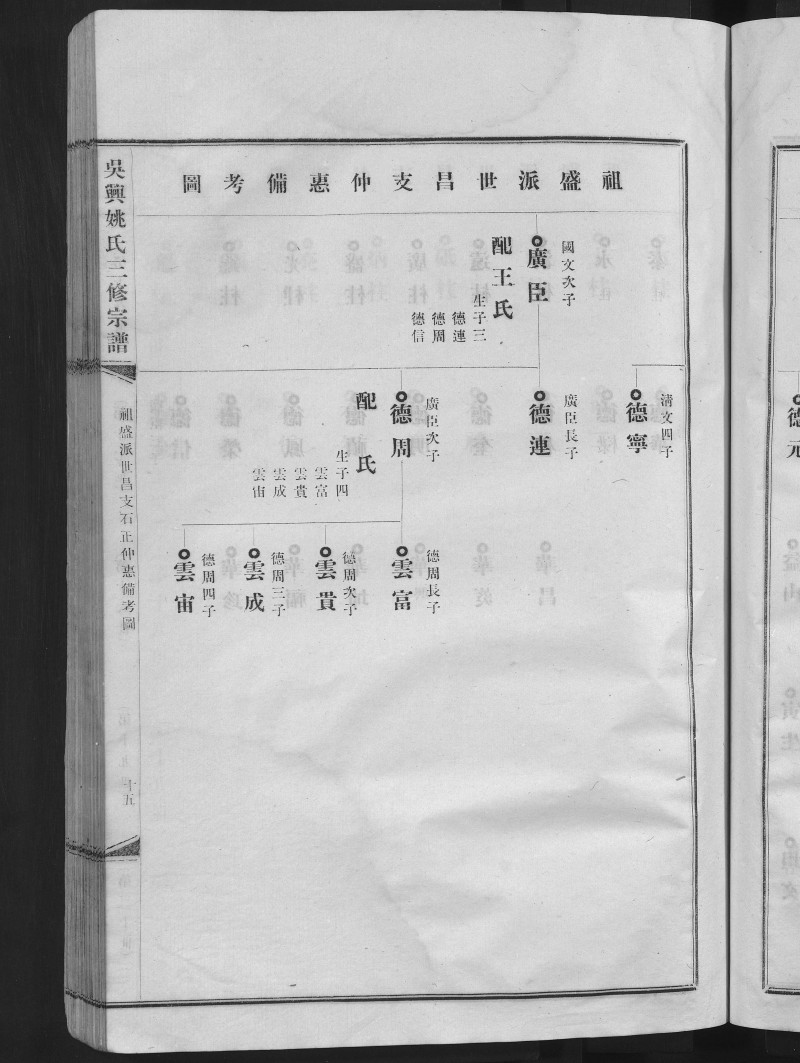 祖盛派世昌支仲惠備考圖
國文次子
廣臣
配王氏
生子三
德連
德周
德信
清文四子
德寧
廣臣長子
德連
廣臣次子
德周
配 氏
生子四
雲富
雲貴
雲成
雲宙
德周長子
雲富
德周次子
雲貴
德周三子
雲成
德周四子
雲宙
吳興姚氏三修宗譜
祖盛派世昌支石正仲惠備考圖
十五
德元